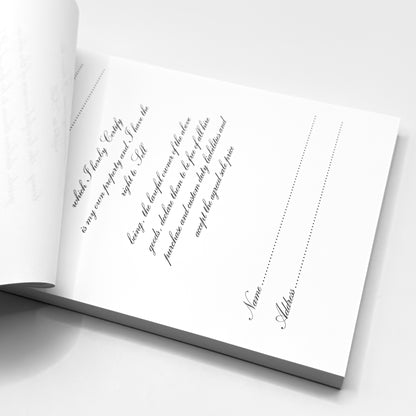 which I hereby Certify
is my own property and I have the
right to Sell
being, the lawful owner of the above
goods, declare them to be free of all hire
purchase and custom duty liabilities and
accept the agreed sale price
Name
Address